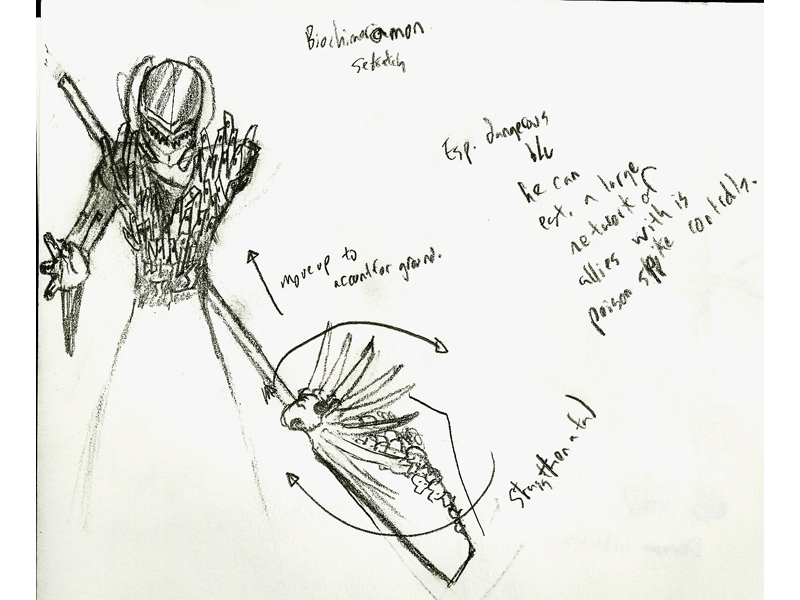 Biochimeramon
Sketch
Esp. dangerous
b/c
he can
est. a large
network of
allies with is
poison spyke controlls.
move up to
account for ground.